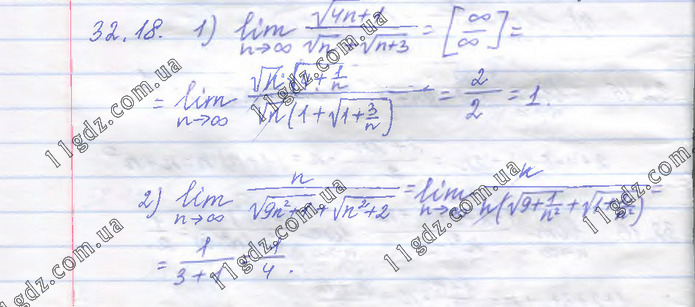 32.18. 1) lim n→∞ √4n+1 / √n + √n+3 = [∞/∞] =
= lim n→∞ √n · √4+1/n / √n (1+√1+3/n) = 2/2 = 1.
2) lim n→∞ n / √9n²+1 + √n²+2 = lim n→∞ n / n(√9+1/n² + √1+2/n²) =
= 1/3+1 = 1/4.
11gdz.com.ua
11gdz.com.ua
11gdz.com.ua
11gdz.com.ua
11gdz.com.ua
11gdz.com.ua